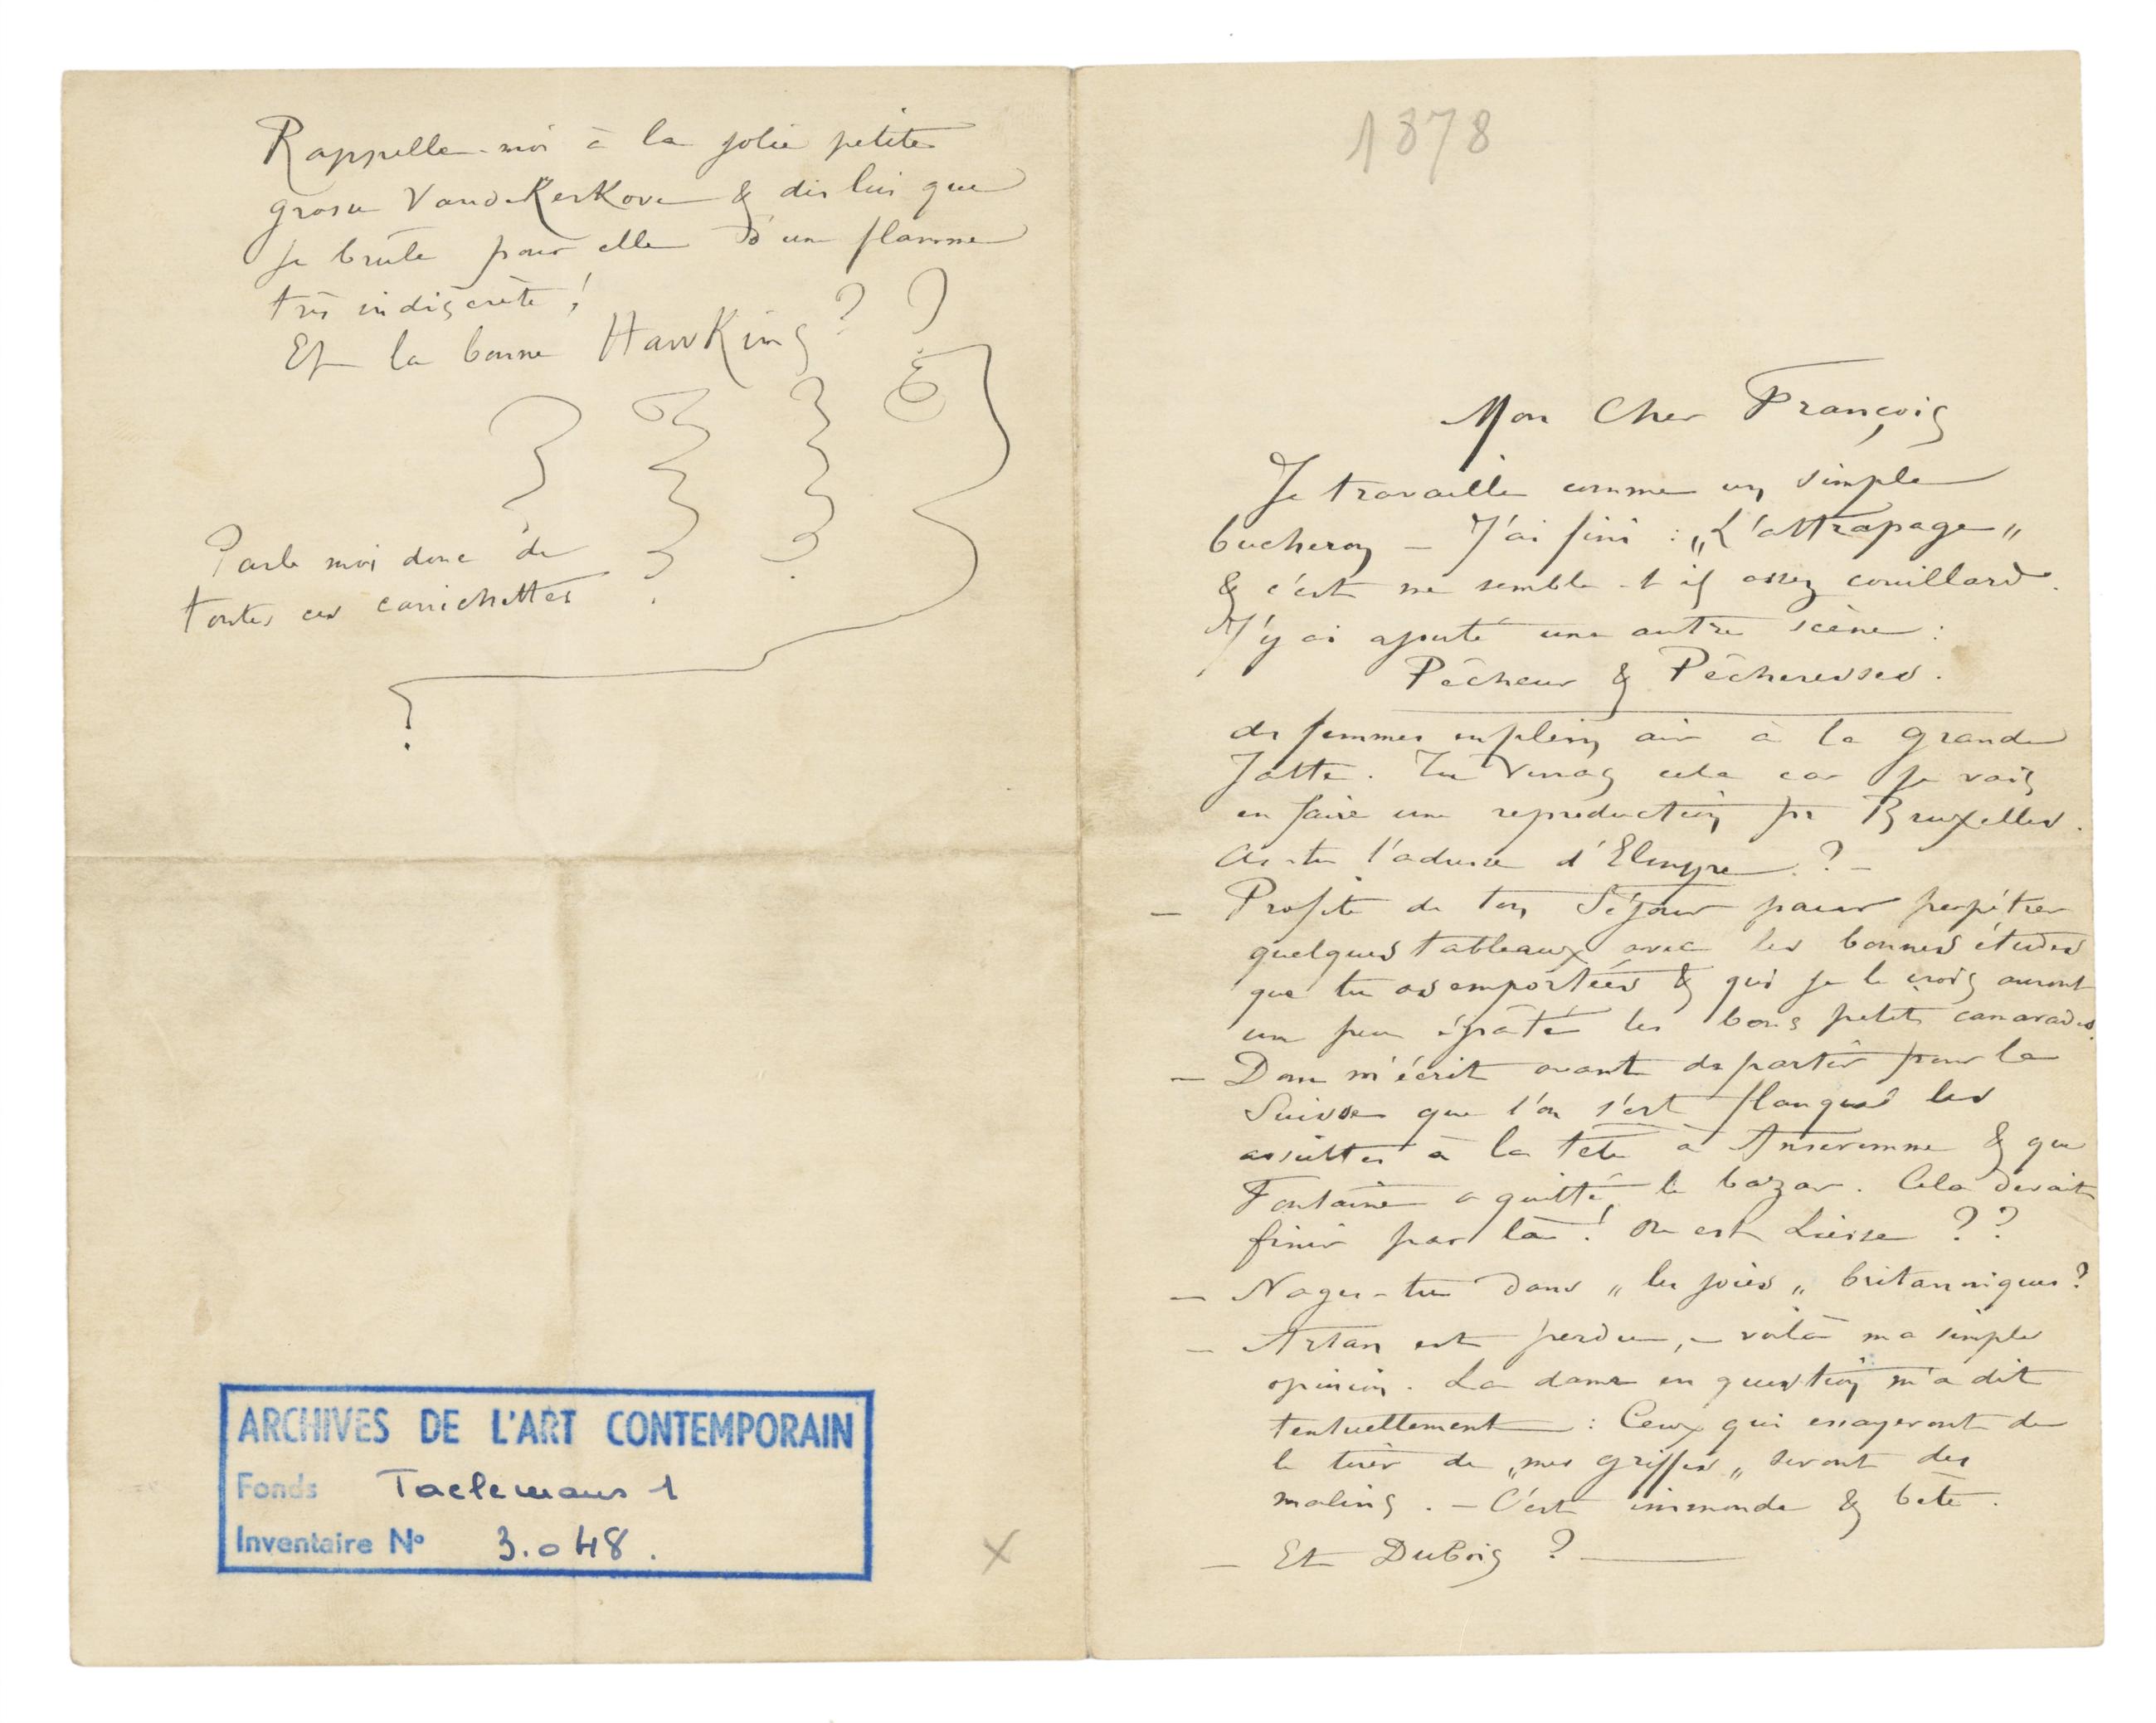 Rappelle-moi à la jolie petite
grosse VandeKerKove & dis lui que
je brûle pour elle d'une flamme
très indiscrète !
Et la bonne HawKing ?
Parle moi donc de
toutes ces canichettes
?
ARCHIVES DE L'ART CONTEMPORAIN
Fonds Taelemans 1
Inventaire Nº 3.048.
X
1878
Mon Cher François
Je travaille comme un simple
bucheron – J'ai fini : „L'attrapage„
& c'est me semble-t-il assez couillard.
J'y ai ajouté une autre scène :
Pêcheur & Pêcheresses.
des femmes en plein air à la grande
Jatte. Tu verras cela car je vais
en faire une reproduction pr Bruxelles.
As-tu l'adresse d'Elmyre. ? –
– Profite de ton Séjour pour perpétrer
quelques tableaux avec les bonnes études
que tu as emportées & qui je le crois auront
un peu épaté les bons petits camarades.
– Dom m'écrit avant de partir pour la
Suisse que l'on s'est flanqué les
assiettes à la tête à Anseremme & que
Fontaine a quitté le bazar. Cela devait
finir par là ! Où est Liesse ??
– Nages-tu dans „les joies„ britanniques ?
– Artan est perdu, – voilà ma simple
opinion. La dame en question m'a dit
textuellement : Ceux qui essayeront de
le tirer de „mes griffes„ seront des
malins. – C'est immonde & bête.
– Et DuBois ? –